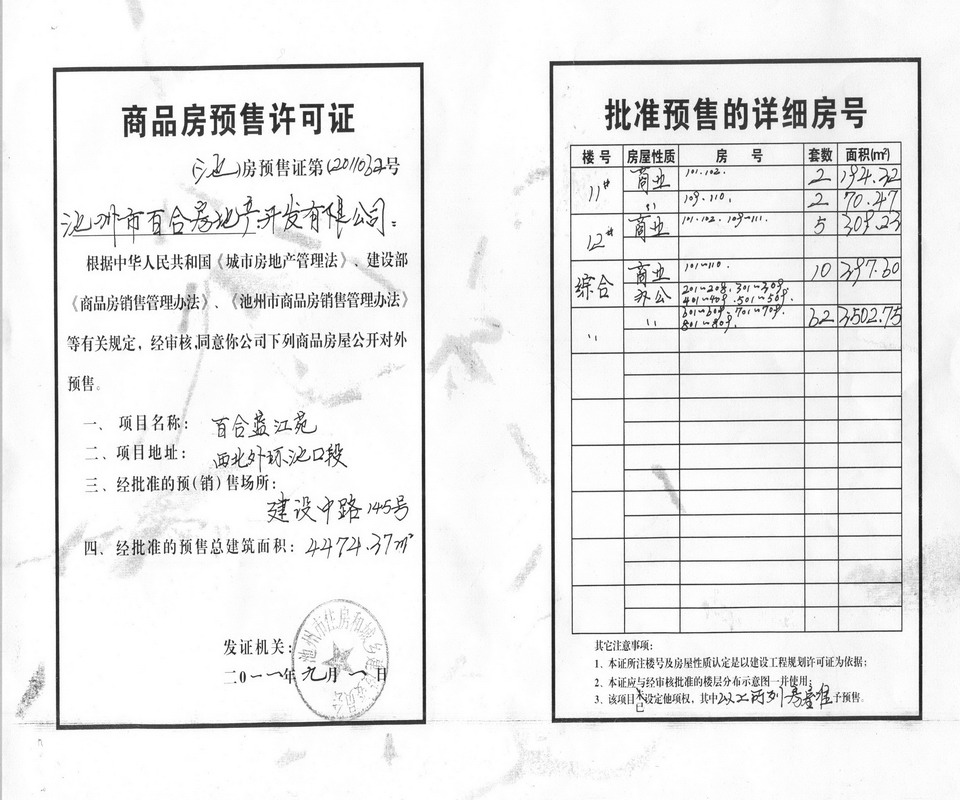 商品房预售许可证
(池)房预售证第(2011)062号
池州市百合房地产开发有限公司：
根据中华人民共和国《城市房地产管理法》、建设部
《商品房销售管理办法》、《池州市商品房销售管理办法》
等有关规定，经审核,同意你公司下列商品房屋公开对外
预售。
一、项目名称： 百合蓝江苑
二、项目地址： 西北外环池口段
三、经批准的预(销)售场所：
建设中路145号
四、经批准的预售总建筑面积：4474.37㎡
发证机关：
二0一一年九月一日
批准预售的详细房号
楼号 房屋性质 房 号 套数 面积(m²)
11# 商业 101.102. 2 194.32
〃 109.110. 2 70.47
12# 商业 101.102.109-111. 5 309.23
综合 商业 101～110. 10 397.30
办公 201～209.301～309.
401～409.501～509.
〃 〃 601～609.701～709. 62 3502.75
801～809.
其它注意事项：
1. 本证所注楼号及房屋性质认定是以建设工程规划许可证为依据；
2. 本证应与经审核批准的楼层分布示意图一并使用；
3. 该项目已设定他项权，其中以上所列房屋准予预售。